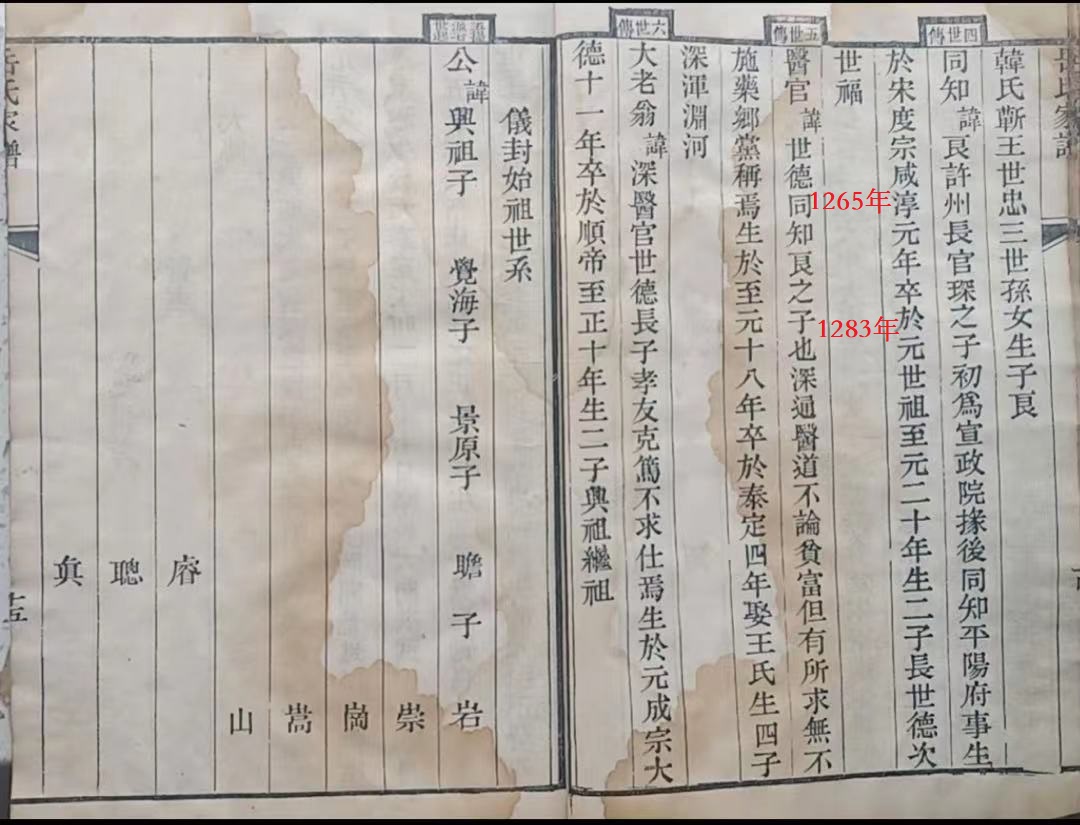 韓氏蘄王世忠三世孫女生子艮
四世傳
同知諱艮許州長官琛之子初爲宣政院掾後同知平陽府事生
於宋度宗咸淳元年卒於元世祖至元二十年生二子長世德次
1265年
1283年
世福
五世傳
醫官諱世德同知艮之子也深通醫道不論貧富但有所求無不
施藥鄉黨稱焉生於至元十八年卒於泰定四年娶王氏生四子
深渾淵河
六世傳
大老翁諱深醫官世德長子孝友克篤不求仕焉生於元成宗大
德十一年卒於順帝至正十年生二子興祖繼祖
儀封始祖世系
公諱興祖子 覺海子 景原子 瞻子 岩
崇
崗
嵩
山
睿
聰
眞
岳氏家譜
十五